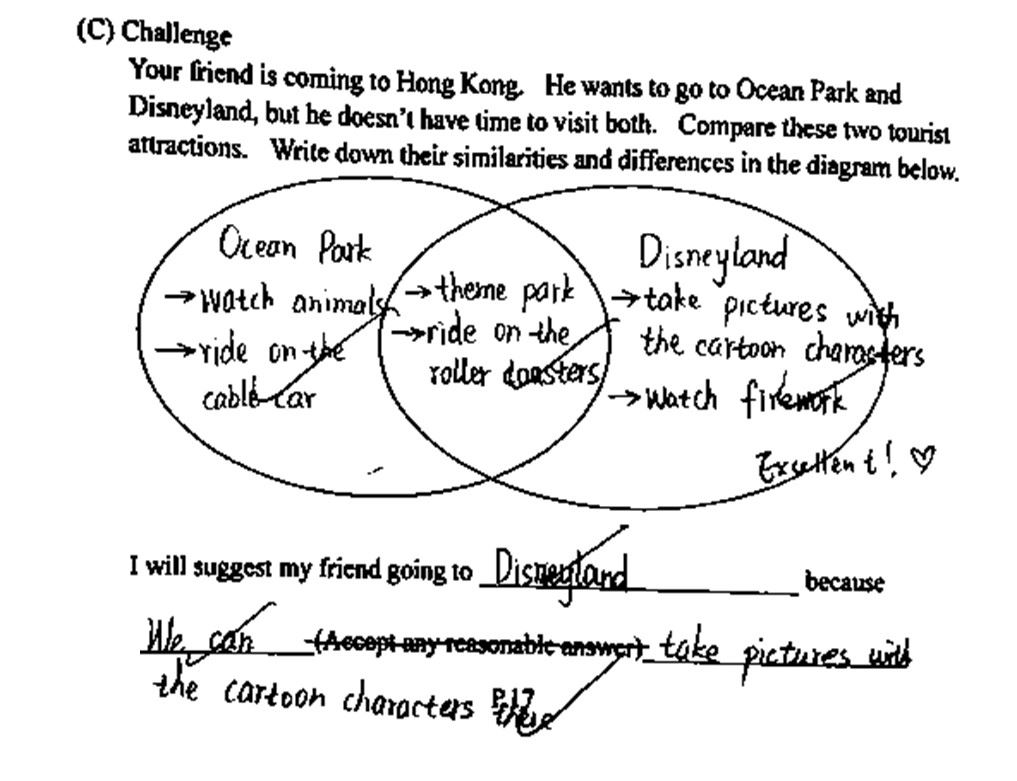 (C) Challenge
Your friend is coming to Hong Kong. He wants to go to Ocean Park and
Disneyland, but he doesn't have time to visit both. Compare these two tourist
attractions. Write down their similarities and differences in the diagram below.
Ocean Park
→ watch animals
→ ride on the
cable car
→ theme park
→ ride on the
roller coasters
Disneyland
→ take pictures with
the cartoon characters
→ watch firework
Excellent! ♡
I will suggest my friend going to Disneyland because
We can (Accept any reasonable answer) take pictures with
the cartoon characters there
P.17